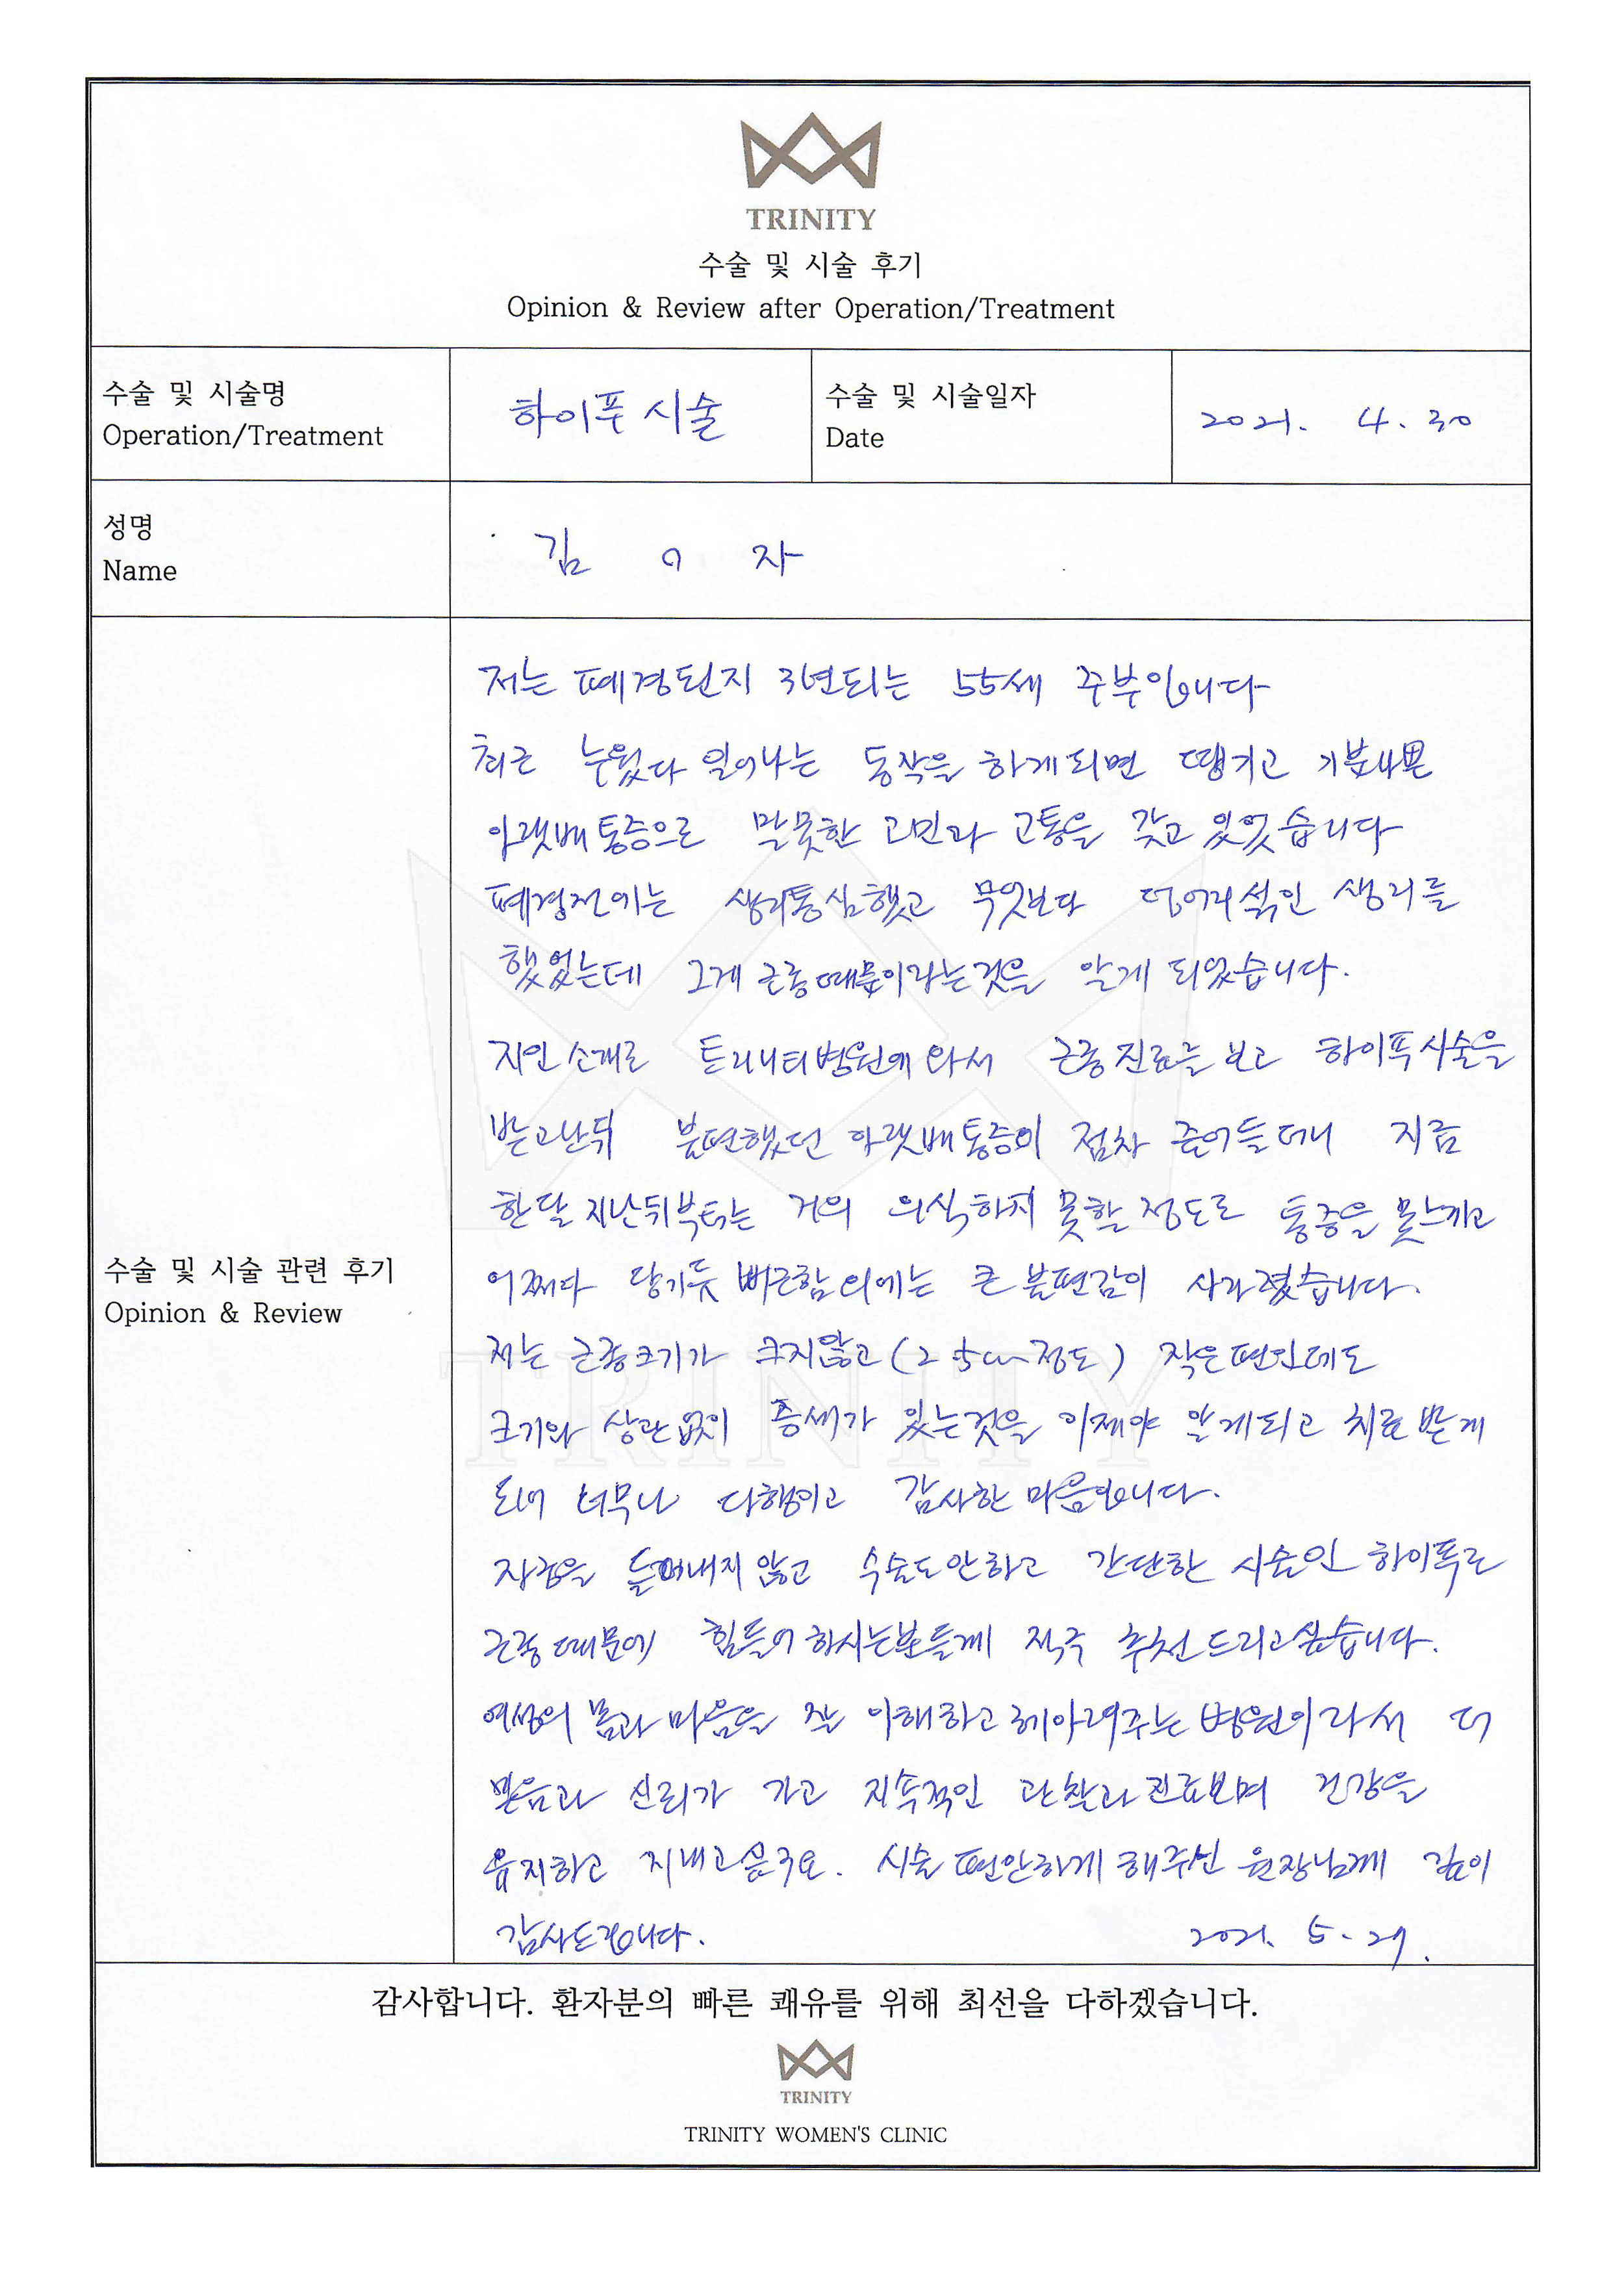 TRINITY
수술 및 시술 후기
Opinion & Review after Operation/Treatment
수술 및 시술명
Operation/Treatment
하이푸 시술
수술 및 시술일자
Date
2021. 4. 30
성명
Name
김 ㅇ 자
수술 및 시술 관련 후기
Opinion & Review
저는 폐경된지 3년되는 55세 주부입니다
최근 누웠다 일어나는 동작을 하게되면 땡기고 기분나쁜
아랫배통증으로 말못한 고민과 고통을 갖고 있었습니다
폐경전에는 생리통심했고 무엇보다 덩어리섞인 생리를
했었는데 그게 근종때문이라는것을 알게 되었습니다.
지인소개로 트리니티병원에 와서 근종진료를 보고 하이푸시술을
받고난뒤 불편했던 아랫배통증이 점차 줄어들더니 지금
한달 지난뒤부터는 거의 의식하지 못할 정도로 통증을 못느끼고
어쩌다 당기듯 뻐근함 외에는 큰 불편감이 사라졌습니다.
저는 근종크기가 크지않고 (2.5cm정도) 작은편인데도
크기와 상관없이 증세가 있는것을 이제야 알게되고 치료받게
되어 너무나 다행이고 감사한 마음입니다.
자궁을 들어내지 않고 수술도안하고 간단한 시술인 하이푸로
근종때문에 힘들어하시는분들께 적극 추천드리고싶습니다.
여성의 몸과 마음을 잘 이해하고 헤아려주는 병원이라서 더
믿음과 신뢰가 가고 지속적인 관찰과 진료보며 건강을
유지하고 지내고싶구요. 시술 편안하게 해주신 원장님께 깊이
감사드립니다. 2021. 5. 29.
감사합니다. 환자분의 빠른 쾌유를 위해 최선을 다하겠습니다.
TRINITY
TRINITY WOMEN'S CLINIC
TRINITY